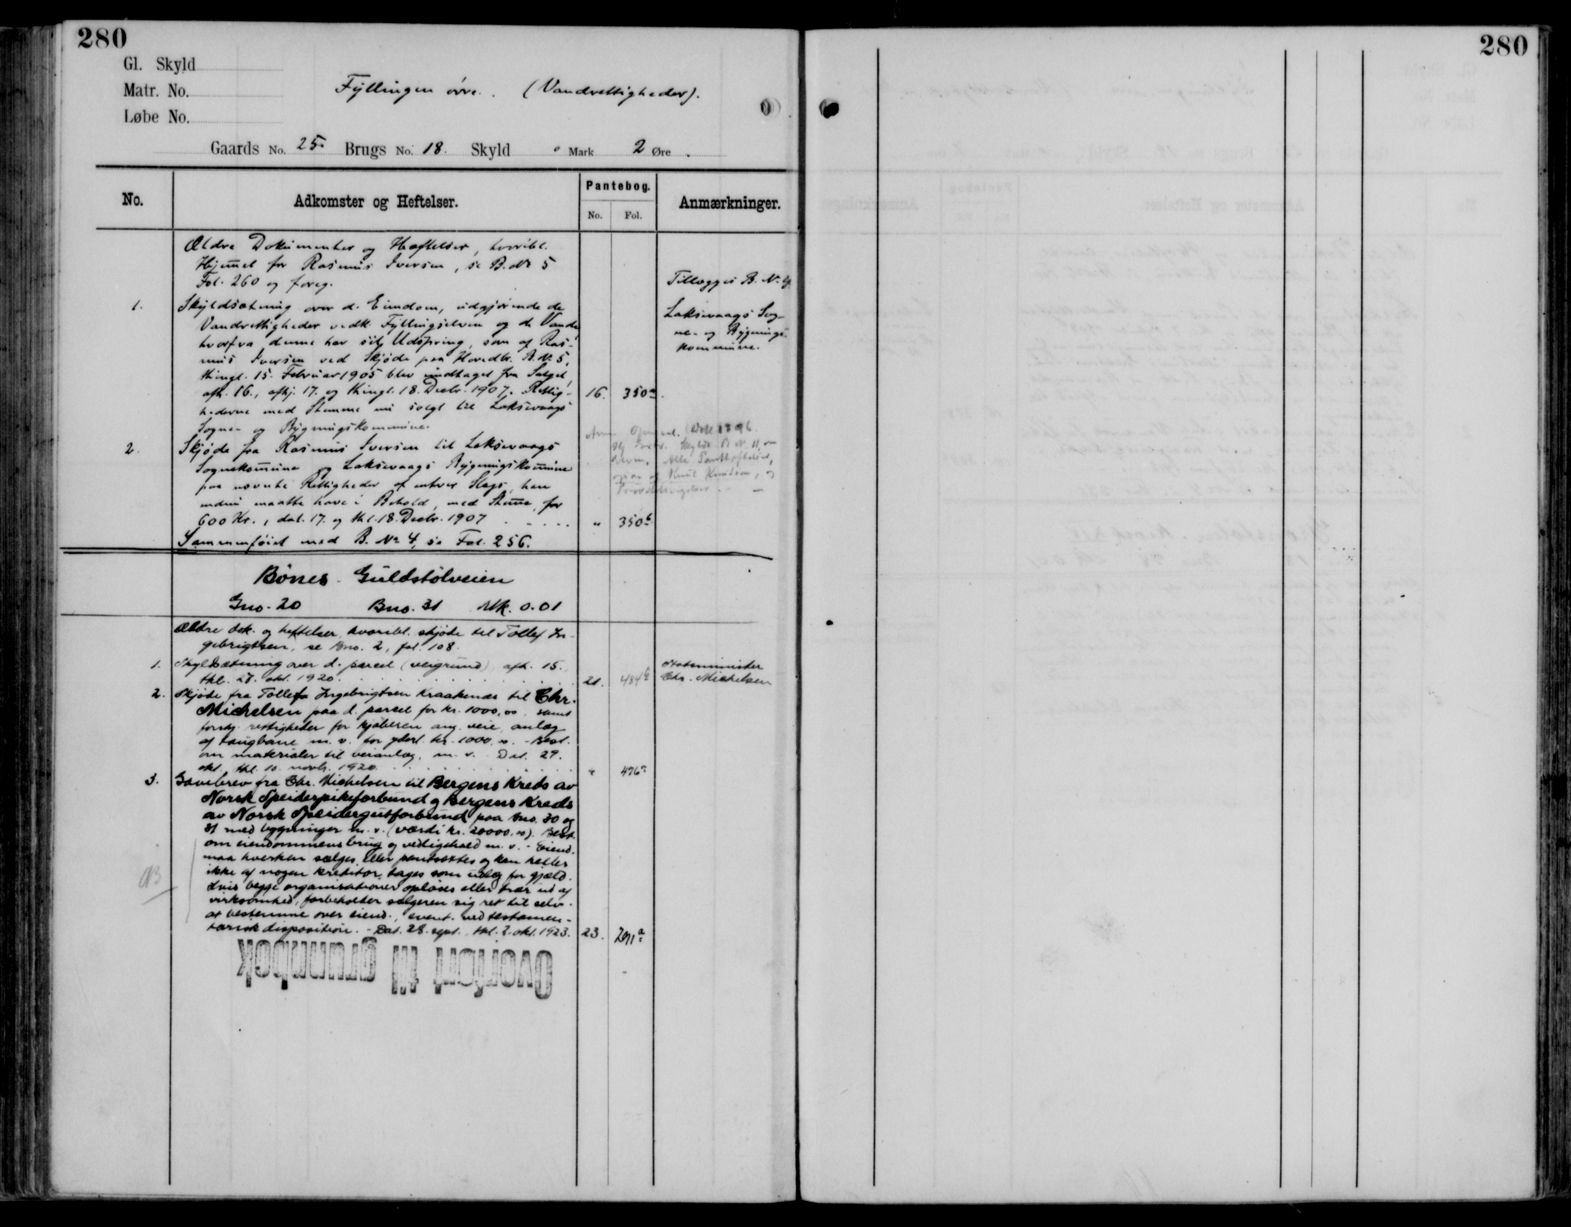 280
280
Gl. Skyld
Matr. No.
Løbe No.
Fyllingen øvre. (Vandrettigheder).
Gaards No. 25 Brugs No. 18. Skyld " Mark 2 Øre.
No.
Adkomster og Heftelser.
Pantebog.
No. Fol.
Anmærkninger.
Ældre Dokumenter og Hæftelser, hvoribl.
Hjemmel for Rasmus Iversen, se B. No 5
Fol. 260 og foreg.
Tillægges B. No 4
1. Skyldsætning over d. Eiendom, udgjørende de
Vandrettigheder vedk. Fyllingselven og de Vande
hvorfra denne har sit Udspring, som af Ras-
mus Iversen ved Skjøde paa Hovedbr. B. No 5,
thingl. 15. Februar 1905 blev undtaget fra Salget,
afh. 16., afhj. 17. og thingl. 18. Decbr. 1907. Rettig-
hederne med Stemme nu solgt til Laksevaags
Sogne- og Bygningskommune.
16. 350a
Laksevaags Sog-
ne- og Bygnings-
kommune.
2. Skjøde fra Rasmus Iversen til Laksevaags
Sognekommune og Laksevaags Bygningskommune
paa nævnte Rettigheder af enhver Slags, han
endnu maatte have i Behold, med Stemme, for
600 Kr., dat. 17. og thl. 18. Decbr. 1907 . . . . .
" 350b
Sammenføiet med B. No 4, se Fol. 256.
Bønes - Guldstølveien
Gno. 20 Bno. 31 Mk. 0.01
Ældre dok. og heftelser, hvoribl. skjøte til Tollef In-
gebrigtsen, se Bno. 2, fol. 108.
1. Skyldsætning over d. parcel (veigrund) afh. 15.
thl. 27. okt. 1920. . . . . . . . . .
21. 484b
Statsminister
Chr. Michelsen
2. Skjøte fra Tollef Ingebrigtsen Kraakenes til Chr.
Michelsen paa d. parcel for kr. 1000,00 samt
forsk. rettigheder for kjøberen ang. veie, anlæg
af taugbane m. v. for ydert. kr. 1000,00. - Best.
om materialer til veianlæg, m. v. Dat. 29.
okt. thl. 10. novb. 1920 . . . . . . . . .
" 496a
3. Gavebrev fra Chr. Michelsen til Bergens Kreds av
Norsk Speiderpikeforbund og Bergens Kreds
av Norsk Speidergutforbund paa bno. 30 og
31 med bygninger m. v. (værdi kr. 20000,00). Best.
om eiendommens brug og vedligehold m. v. - Eiend.
maa hverken sælges eller pantsættes og kan heller
ikke af nogen kreditor tages som utlæg for gjæld.
Hvis begge organisationer opløses eller trær ut af
virksomhed, forbeholder sælgeren sig ret til selv
at bestemme over eiend., event. ved testamen-
tarisk disposition. - Dat. 28. sept. thl. 2. okt. 1923.
23. 201a
Overført til grunnbok